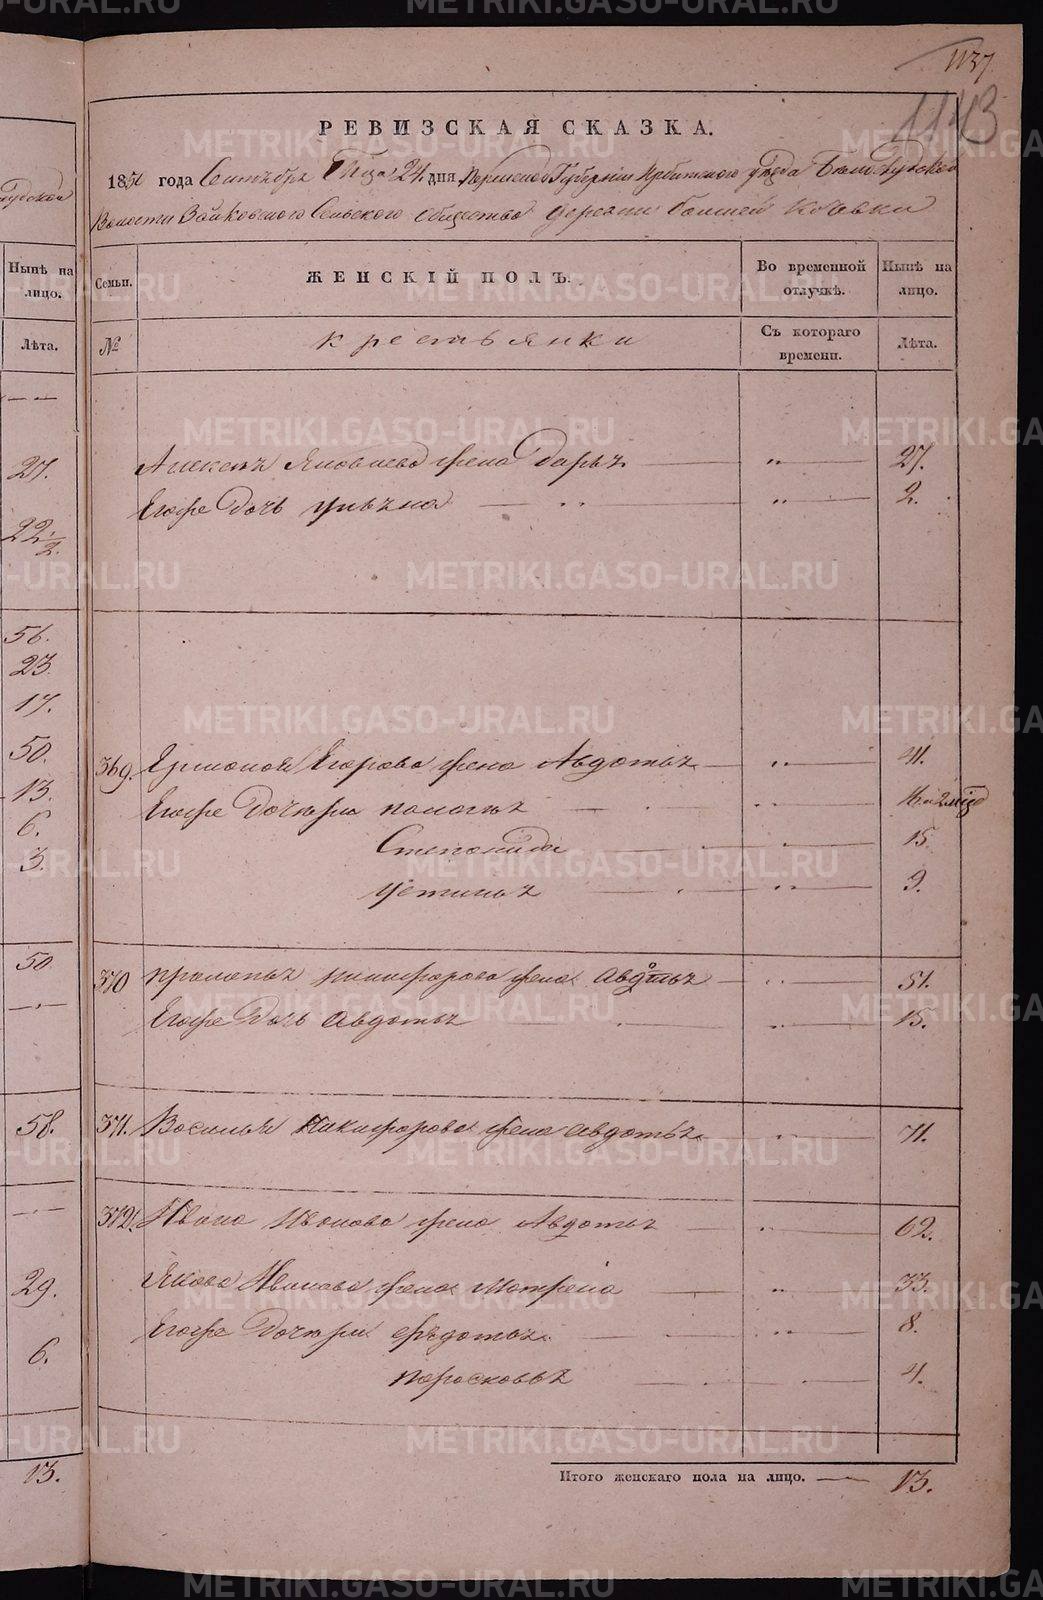 METRIKI.GASO-URAL.RU
1137
1143
РЕВИЗСКАЯ СКАЗКА.
1850 года Сентября 24 дня Пермской Губернии Ирбитского уезда
Волости Зайковского Сельского общества деревни
Нынѣ на лицо.
Семьи.
ЖЕНСКІЙ ПОЛЪ.
Во временной отлучкѣ.
Нынѣ на лицо.
Лѣта.
№
крестьянки
Съ котораго времени.
Лѣта.
27.
Яковлева жена Дарья 27.
Егоже дочь 2.
22 1/2.
56.
23.
17.
50.
369. Егорова жена Авдотья 41.
13.
Егоже дочери
6.
Степонида 15
3.
9.
50
370 Никифорова жена Авдотья 51.
Егоже дочь Авдотья 15.
58.
371. Никифорова жена Авдотья 71.
372. Ивана Иванова жена Авдотья 62.
29.
Якова Иванова жена Матрена 33.
Егоже дочери Федотья 8.
6.
Поросковья 4.
13.
Итого женскаго пола на лицо. 13.